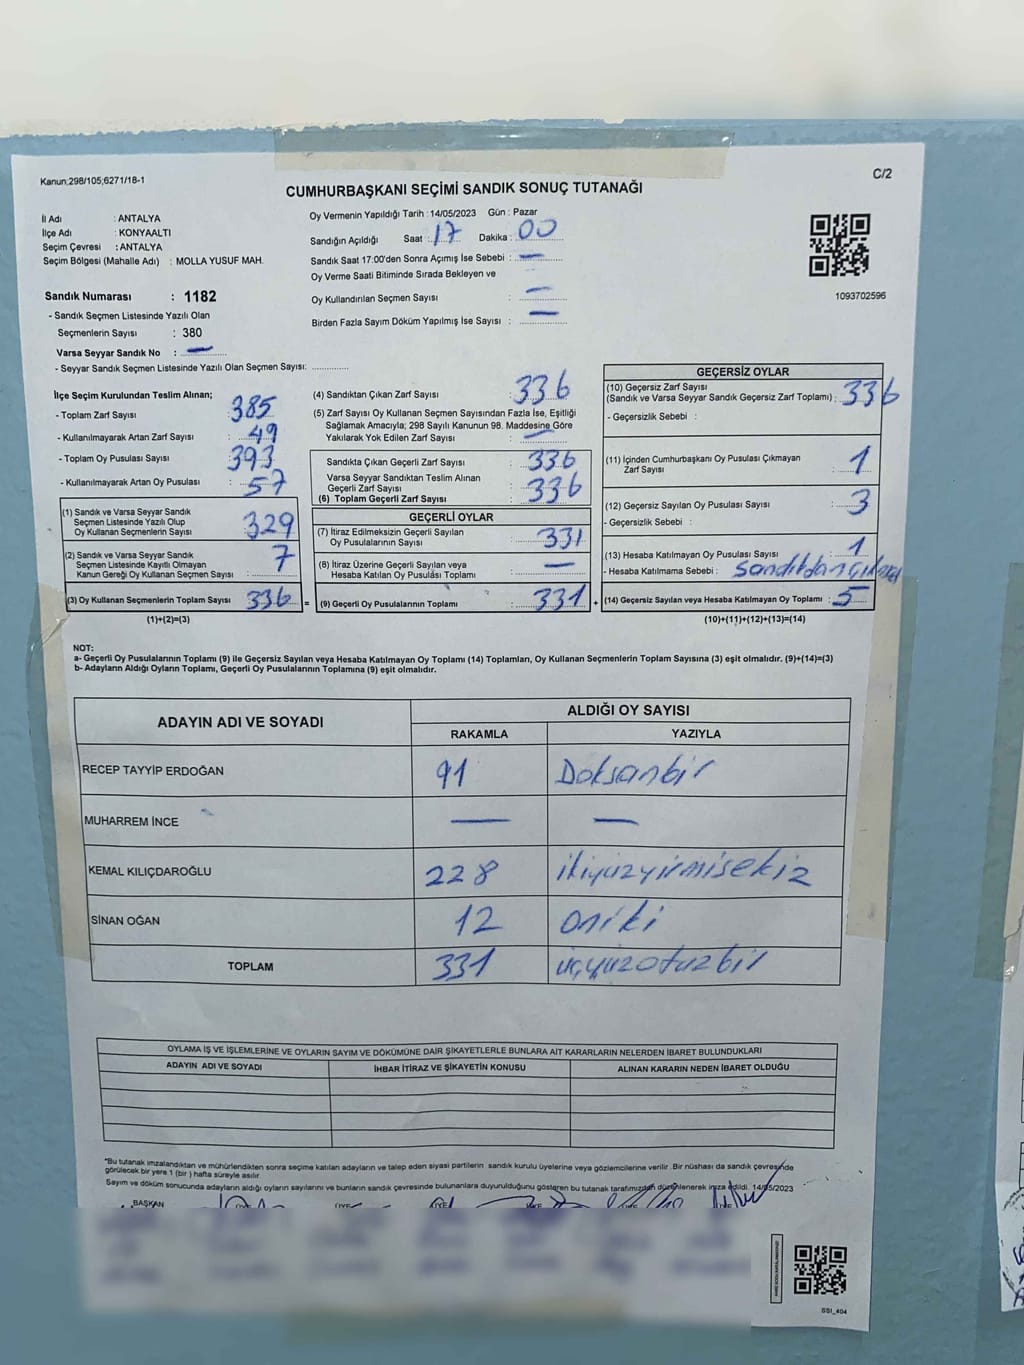 Kanun;298/105;6271/18-1
C/2
CUMHURBAŞKANI SEÇİMİ SANDIK SONUÇ TUTANAĞI
İl Adı : ANTALYA
İlçe Adı : KONYAALTI
Seçim Çevresi : ANTALYA
Seçim Bölgesi (Mahalle Adı) : MOLLA YUSUF MAH.
Oy Vermenin Yapıldığı Tarih : 14/05/2023 Gün : Pazar
Sandığın Açıldığı Saat : 17 Dakika : 00
Sandık Saat 17:00'den Sonra Açımış İse Sebebi : —
Oy Verme Saati Bitiminde Sırada Bekleyen ve
Oy Kullandırılan Seçmen Sayısı : —
Birden Fazla Sayım Döküm Yapılmış İse Sayısı : —
1093702596
Sandık Numarası : 1182
- Sandık Seçmen Listesinde Yazılı Olan
Seçmenlerin Sayısı : 380
Varsa Seyyar Sandık No : —
- Seyyar Sandık Seçmen Listesinde Yazılı Olan Seçmen Sayısı:
İlçe Seçim Kurulundan Teslim Alınan;
- Toplam Zarf Sayısı : 385
- Kullanılmayarak Artan Zarf Sayısı : 49
- Toplam Oy Pusulası Sayısı : 393
- Kullanılmayarak Artan Oy Pusulası : 57
(1) Sandık ve Varsa Seyyar Sandık
Seçmen Listesinde Yazılı Olup
Oy Kullanan Seçmenlerin Sayısı : 329
(2) Sandık ve Varsa Seyyar Sandık
Seçmen Listesinde Kayıtlı Olmayan
Kanun Gereği Oy Kullanan Seçmen Sayısı : 7
(3) Oy Kullanan Seçmenlerin Toplam Sayısı : 336
(1)+(2)=(3)
(4) Sandıktan Çıkan Zarf Sayısı : 336
(5) Zarf Sayısı Oy Kullanan Seçmen Sayısından Fazla İse, Eşitliği
Sağlamak Amacıyla; 298 Sayılı Kanunun 98. Maddesine Göre
Yakılarak Yok Edilen Zarf Sayısı : —
Sandıkta Çıkan Geçerli Zarf Sayısı : 336
Varsa Seyyar Sandıktan Teslim Alınan
Geçerli Zarf Sayısı
(6) Toplam Geçerli Zarf Sayısı : 336
GEÇERLİ OYLAR
(7) İtiraz Edilmeksizin Geçerli Sayılan
Oy Pusulalarının Sayısı : 331
(8) İtiraz Üzerine Geçerli Sayılan veya
Hesaba Katılan Oy Pusulası Toplamı : —
= (9) Geçerli Oy Pusulalarının Toplamı : 331 +
GEÇERSİZ OYLAR
(10) Geçersiz Zarf Sayısı
(Sandık ve Varsa Seyyar Sandık Geçersiz Zarf Toplamı) : 336
- Geçersizlik Sebebi :
(11) İçinden Cumhurbaşkanı Oy Pusulası Çıkmayan
Zarf Sayısı : 1
(12) Geçersiz Sayılan Oy Pusulası Sayısı : 3
- Geçersizlik Sebebi :
(13) Hesaba Katılmayan Oy Pusulası Sayısı : 1
- Hesaba Katılmama Sebebi : Sandıkdan
(14) Geçersiz Sayılan veya Hesaba Katılmayan Oy Toplamı : 5
(10)+(11)+(12)+(13)=(14)
NOT:
a- Geçerli Oy Pusulalarının Toplamı (9) ile Geçersiz Sayılan veya Hesaba Katılmayan Oy Toplamı (14) Toplamları, Oy Kullanan Seçmenlerin Toplam Sayısına (3) eşit olmalıdır. (9)+(14)=(3)
b- Adayların Aldığı Oyların Toplamı, Geçerli Oy Pusulalarının Toplamına (9) eşit olmalıdır.
ADAYIN ADI VE SOYADI
ALDIĞI OY SAYISI
RAKAMLA YAZIYLA
RECEP TAYYİP ERDOĞAN 91 Doksanbir
MUHARREM İNCE — —
KEMAL KILIÇDAROĞLU 228 ikiyüzyirmisekiz
SİNAN OĞAN 12 oniki
TOPLAM 331 üçyüzotuzbir
OYLAMA İŞ VE İŞLEMLERİNE VE OYLARIN SAYIM VE DÖKÜMÜNE DAİR ŞİKAYETLERLE BUNLARA AİT KARARLARIN NELERDEN İBARET BULUNDUKLARI
ADAYIN ADI VE SOYADI İHBAR İTİRAZ VE ŞİKAYETİN KONUSU ALINAN KARARIN NEDEN İBARET OLDUĞU
*Bu tutanak imzalandıktan ve mühürlendikten sonra seçime katılan adayların ve talep eden siyasi partilerin sandık kurulu üyelerine veya gözlemcilerine verilir. Bir nüshası da sandık çevresinde
görülecek bir yere 1 (bir) hafta süreyle asılır.
Sayım ve döküm sonucunda adayların aldığı oyların sayılarını ve bunların sandık çevresinde bulunanlara duyurulduğunu gösteren bu tutanak tarafımızdan düzenlenerek imza edildi. 14/05/2023
BAŞKAN ÜYE ÜYE ÜYE ÜYE ÜYE ÜYE
SSI_404